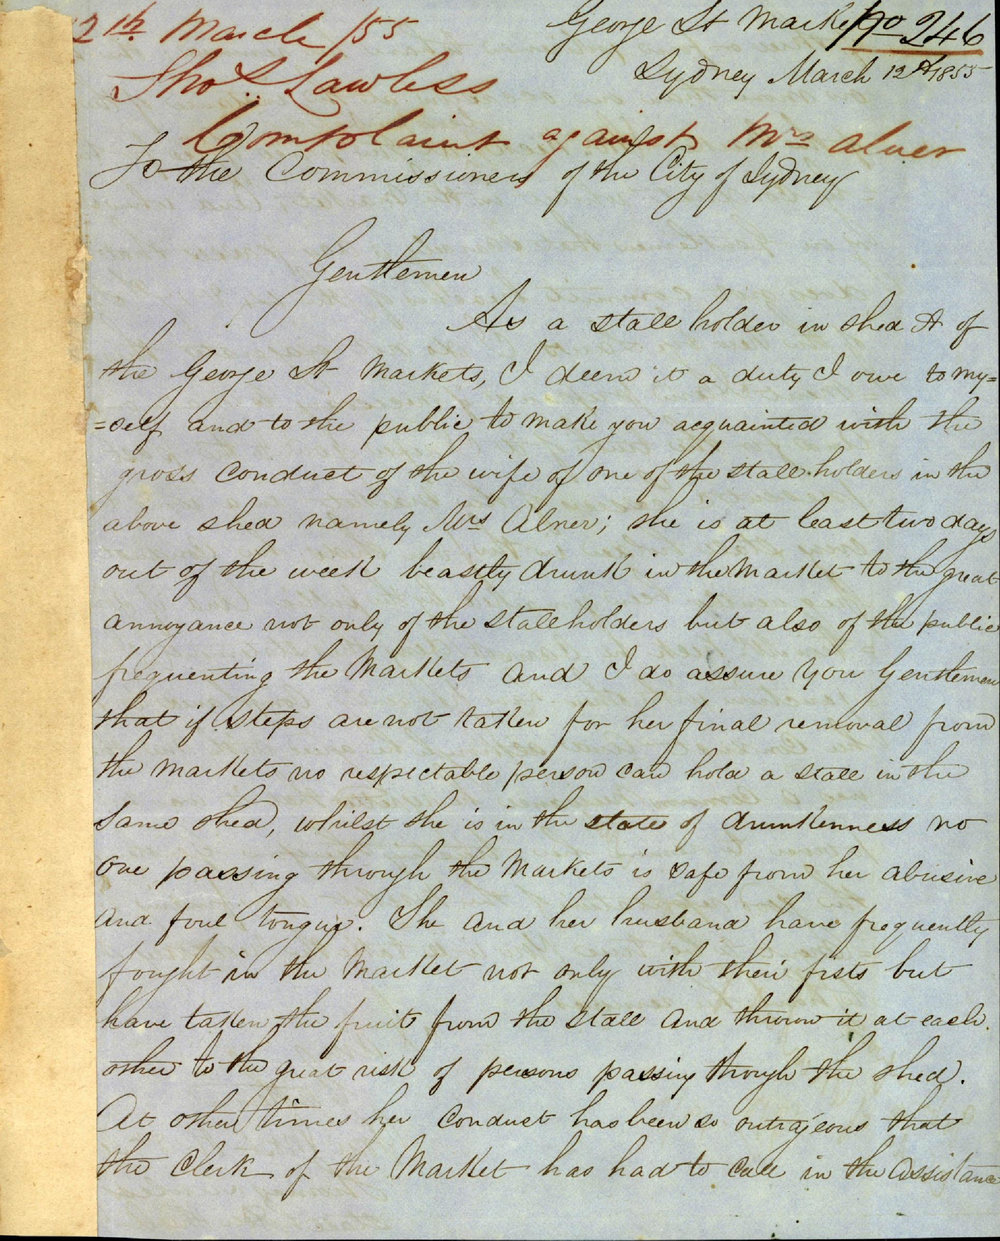 12th March /55
George St Market
No 246
Thos Lawless
Sydney March 12th 1855
Complaint against Mrs Alner
To the Commissioners of the City of Sydney
Gentlemen
As a stall holder in shed A of
the George St Markets, I deem it a duty I owe to my=
=self and to the public to make you acquainted with the
gross conduct of the wife of one of the stall holders in the
above shed namely Mrs Alner; she is at least two days
out of the week beastly drunk in the Market to the great
annoyance not only of the stallholders but also of the public
frequenting the Markets and I do assure you Gentlemen
that if steps are not taken for her final removal from
the Markets no respectable person can hold a stall in the
same shed, whilst she is in the state of drunkenness no
one passing through the Markets is safe from her abusive
and foul tongue. She and her husband have frequently
fought in the Market not only with their fists but
have taken the fruit from the stall and thrown it at each
other to the great risk of persons passing through the shed.
At other times her conduct has been so outrageous that
the Clerk of the Market has had to call in the assistance